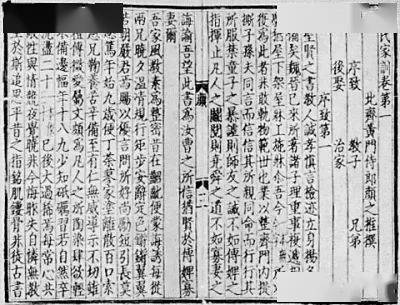 氏家訓卷第一
北齊黃門侍郎顏之推撰
序致 教子 兄弟
後娶 治家
序致第一
聖賢之書教人誠孝慎言檢迹立身揚名
備矣魏晉已來所著諸子理重事複遞相
屋下架屋牀上施牀
復為此者非敢軌物範世也業以整齊門內提
撕子孫夫同言而信信其所親同命而行行其
所服禁童子之暴謔則師友之誡不如傅婢之
指揮止凡人之鬥鬩則堯舜之道不如寡妻之
誨諭吾望此書為汝曹之所信猶賢於傅婢寡
妻爾
吾家風教素為整密昔在齠齔便蒙誨誘每從
兩兄曉夕溫凊規行矩步安辭定色鏘鏘翼翼
若朝嚴君焉賜以優言問所好尚勵短引長莫
篤年始九歲便丁荼蓼家塗離散百口索
慈兄鞠養苦辛備至有仁無威導示不切雖
禮傳微愛屬文頗為凡人之所陶染肆欲輕
不備邊幅年十八九少知砥礪習若自然卒
洗盪二十已後大過稀焉每常心共
敵性與情競夜覺曉非今悔昨失自憐無教
至於斯追思平昔之指銘肌鏤骨非徒古書